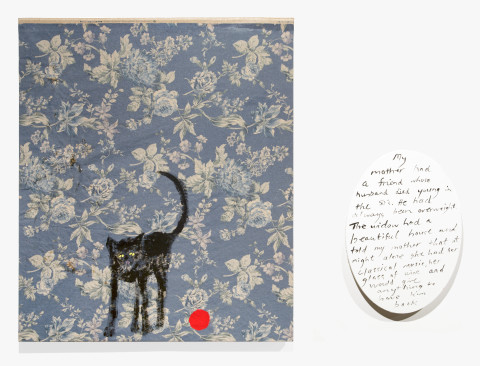 My
mother had
a friend whose
husband died young in
the 50s. He had
always been overweight.
The widow had a
beautiful house and
told my mother that at
night alone she had her
classical music, her
glass of wine and
would give
anything to
have him
back.